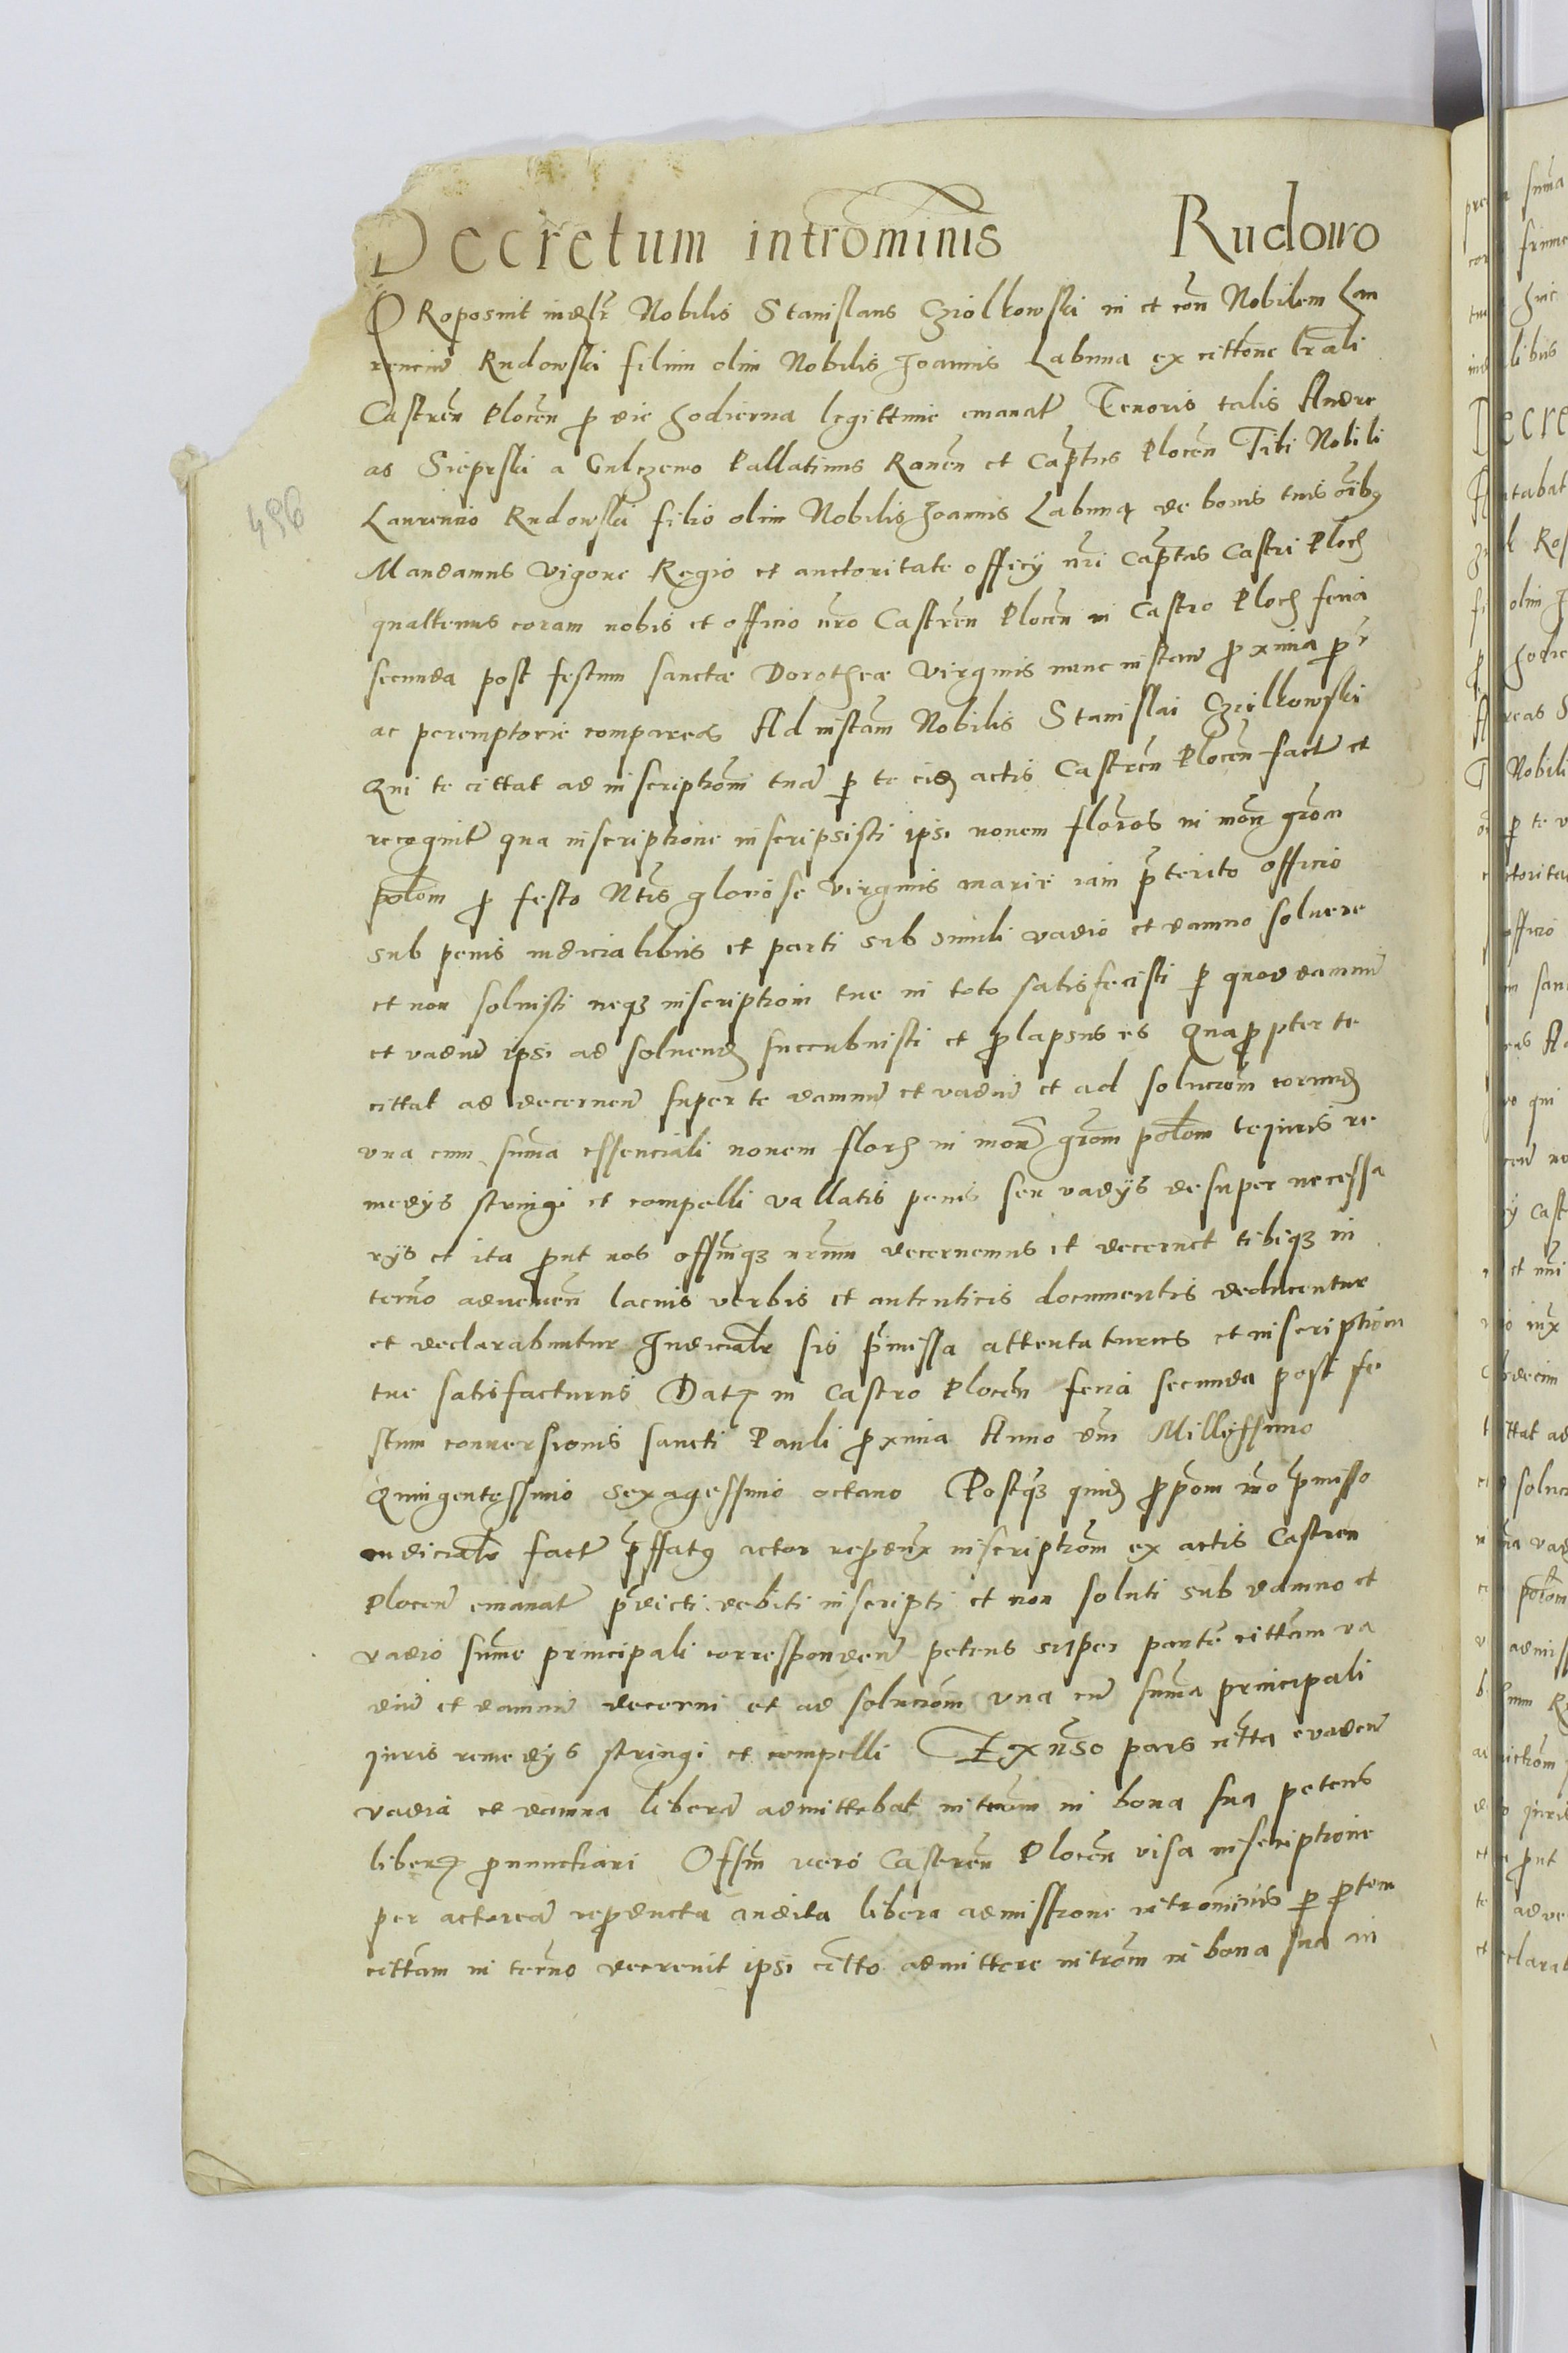 Decretum intromīnis Rudowo
PRoposuit iudlr Nobilis Stanislaus Cziolkowski in et con̄ Nobilem Lau
renciū Rudowski filium olim Nobilis Joannis Labuna ex cittōne lrāli
Castreñ Ploceñ p die hodierna legittime emanat̄ Tenoris talis Andre
as Sieprski a Gulczewo Pallatinus Raueñ et Capt̄us Ploceñ Tibi Nobili
Laurencio Rudowski filio olim Nobilis Joannis Labunę de bonis tuis oībȝ
Mandamus vigore Regio et auctoritate officij nr̄i Capt̄us Castri Ploch
quattenus coram nobis et officio nr̄o Castreñ Ploceñ in Castro Ploch feria
secunda post festum sanctæ Dorotheæ virginis nunc instan̄ proxima pr
ac peremptorie compareas Ad instan̄ Nobilis Stanislai Cziolkowski
Qui te cittat ad inscriptiōni tuā p te eisd actis Castreñ Ploceñ fact̄ et
recognit̄ qua inscriptione inscripsisti ipsi nonem flōros in mon̄ grōm
polōm p festo Nt̄is gloriose virginis marie iam p̄terito officio
sub penis iudicialibus et parti sub simili vadio et damno soluere
et non soluisti neqȝ inscriptioni tue in toto satisfecisti p quod damnū
et vadiū ipsi ad soluend succubuisti et prolapsus es Quapropter te
cittat ad decernen̄ super te damnū et vadiū et ad soluciōm eorund
vna cum sum̄a essenciali nonem flor in mon̄ grōm polōm te juris re
medijs stringi et compelli vallatis penis seu vadijs desuper necessa
rijs et ita prout nos offm̄qȝ nr̄um decernemus et decernet tibiqȝ in
termō adueneñ lacius verbis et autenticis documentis deducentur
et declarabuntur Judicialr sis p̄missa attentaturus et inscriptiōni
tue satisfacturus Datt in Castro Ploceñ feria secunda post fe
stum conuersionis sancti Pauli proxima Anno dn̄i Millessimo
Quingentessimo sexagessimo octauo Postqȝ quid propōm mō p̄misso
iudicialr fact̄ p̄ffatȝ actor reprodux inscriptiōm ex actis Castren
Ploceñ emanat̄ p̄dicti debiti inscripti et non soluti sub damno et
vadio sum̄e principali corresponden̄ petens super partē cittām va
diū et damnū decerni et ad soluciōm vna cū sum̄a principali
juris remedijs stringi et compelli Ex aūso pars citta euaden̄
vadia et damna liberā admittebat introm̄ in bona sua petens
liberȝ pronunctiari Offm̄ vero Castreñ Ploceñ visa inscriptione
per actoreā reproducta audita libera admissione intromīnis p prtem
cittām in termō decreuit ipsi citto admittere introm̄ in bona sua in